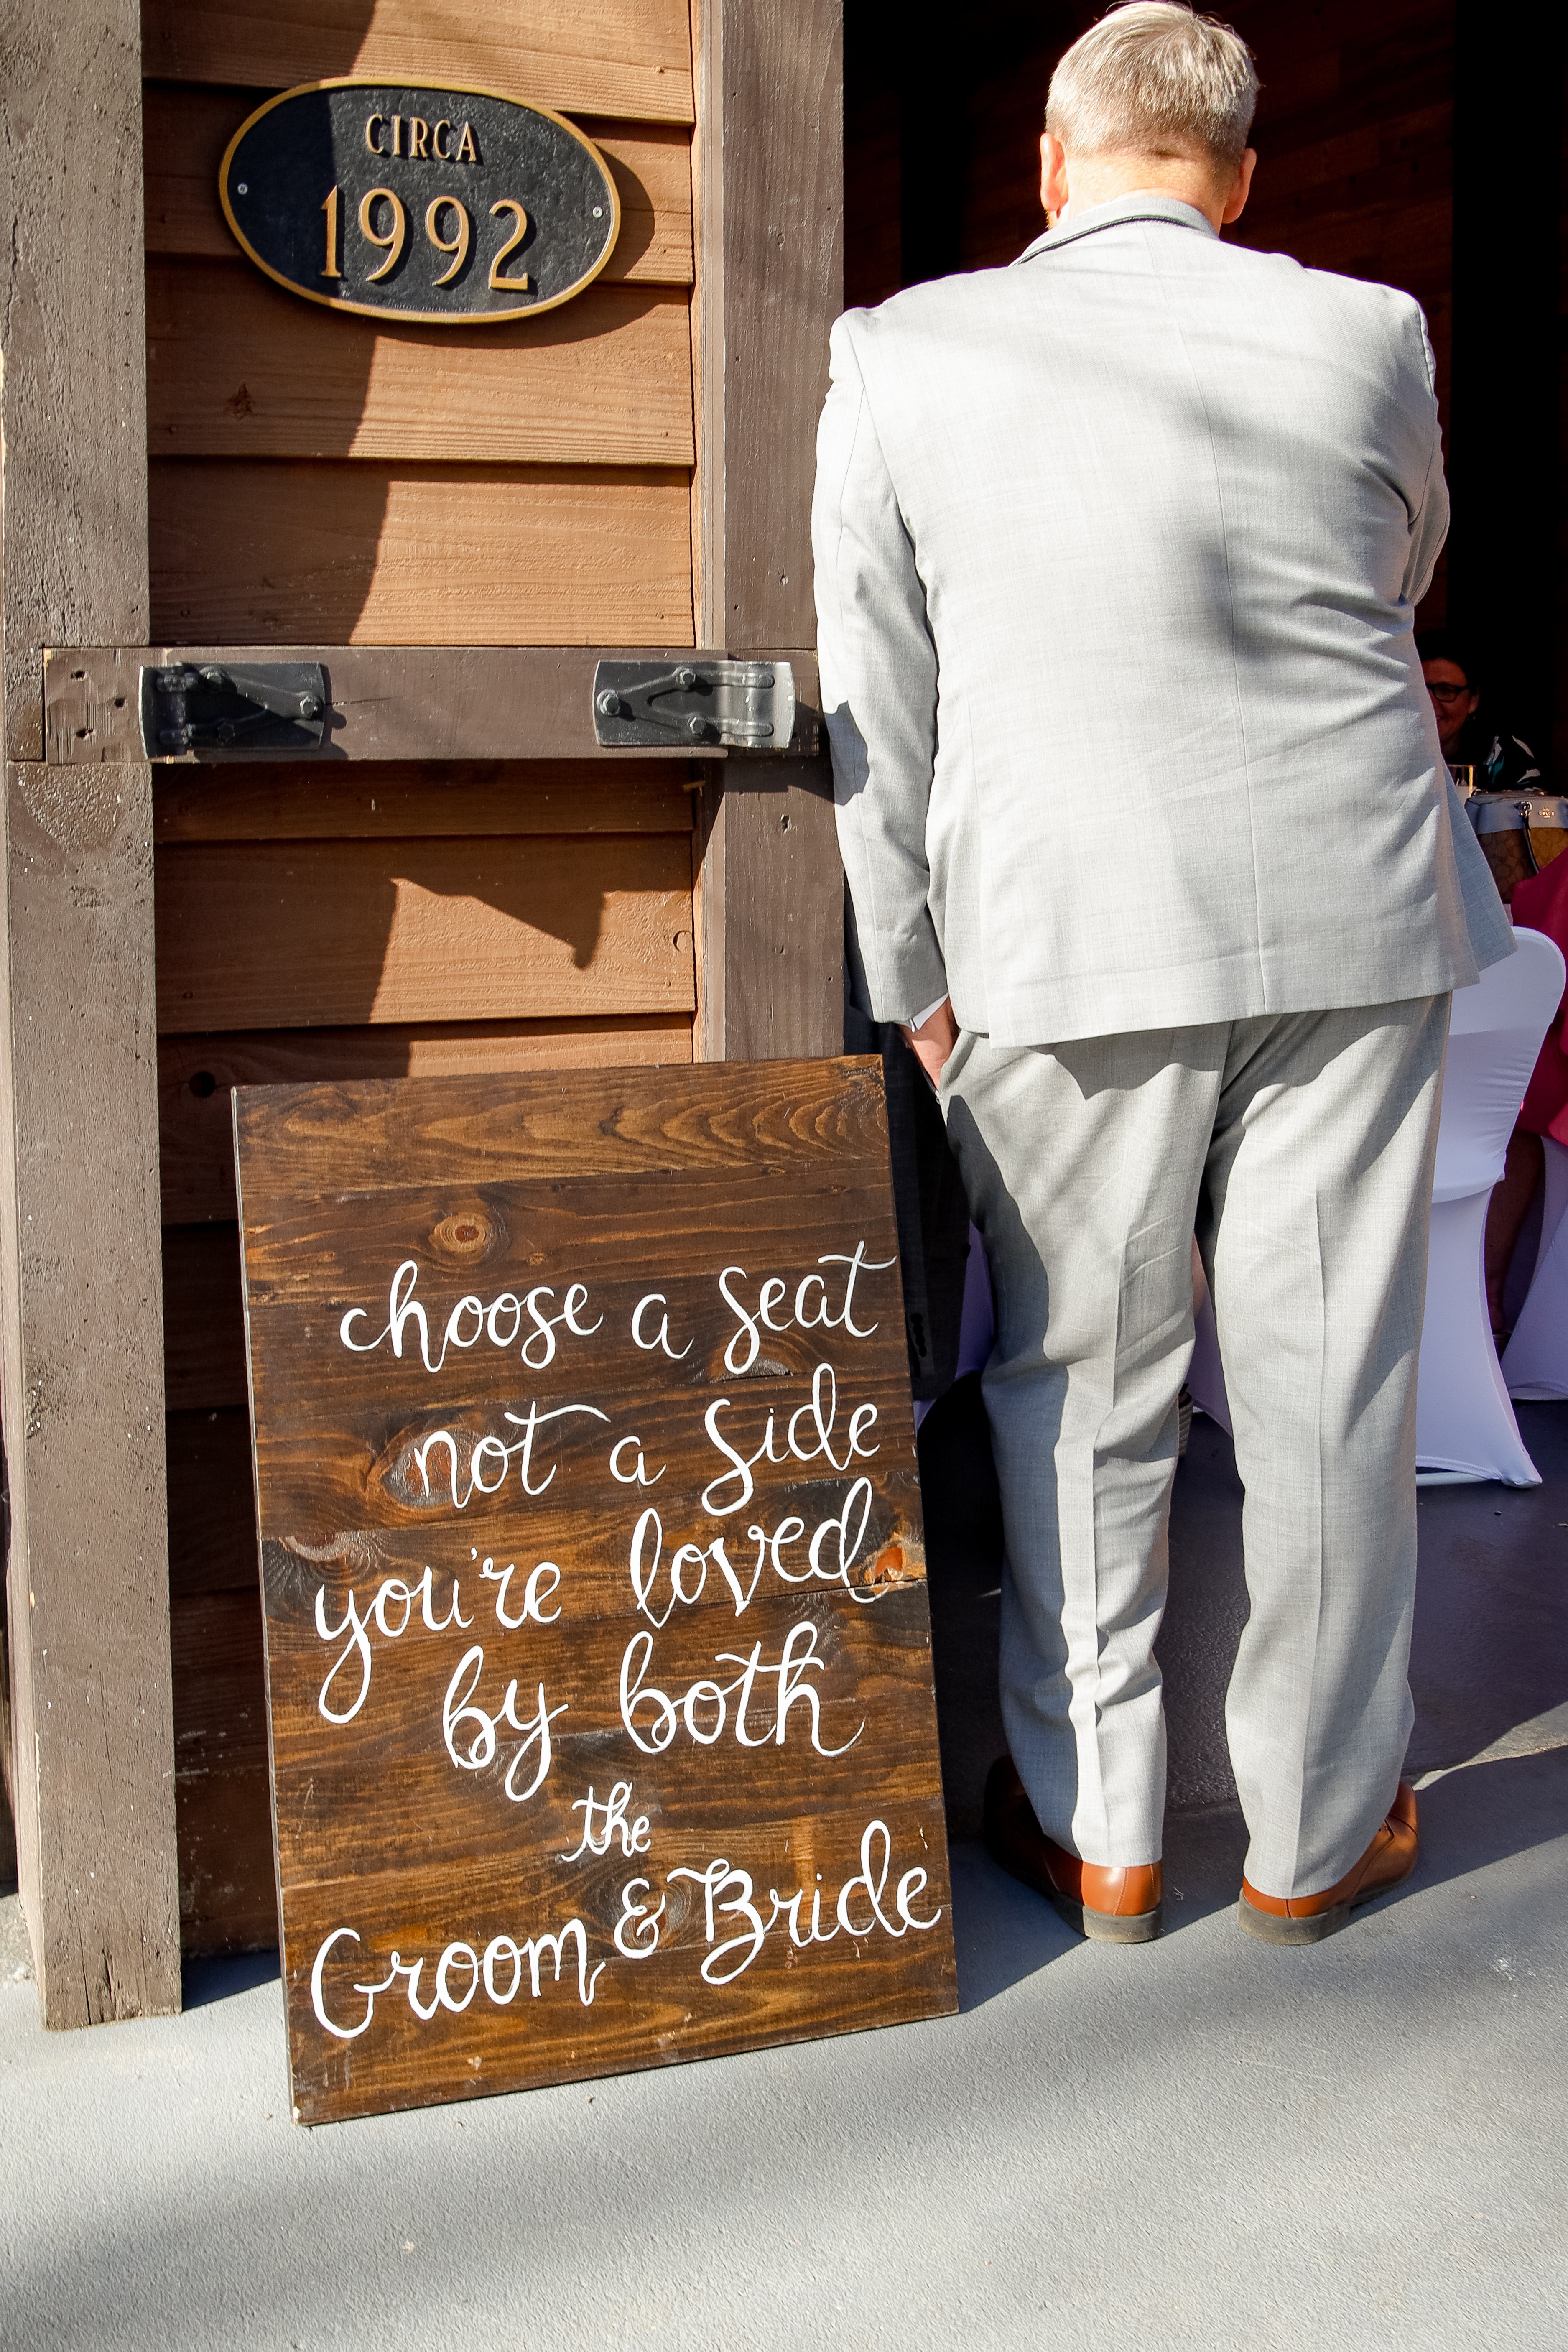 CIRCA
1992
choose a seat
not a side
you're loved
by both
the
Groom & Bride